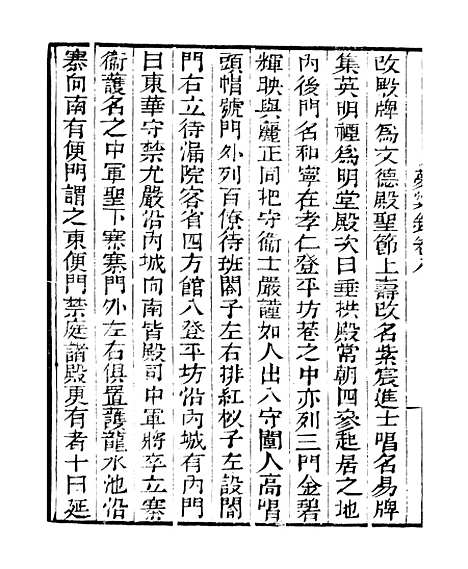 改殿牌爲文德殿聖節上壽改名紫宸進士唱名易牌
集英明禋爲明堂殿次曰垂拱殿常朝四參起居之地
內後門名和寧在孝仁登平坊巷之中亦列三門金碧
輝映與麗正同把守衞士嚴謹如人出入守闈人高唱
頭帽號門外列百僚待班閤子左右排紅杈子左設閤
門右立待漏院客省四方館入登平坊沿內城有內門
曰東華守禁尤嚴沿內城向南皆殿司中軍將卒立寨
衞護名之中軍聖下寨寨門外左右俱置護龍水池沿
寨向南有便門謂之東便門禁庭諸殿更有者十曰延